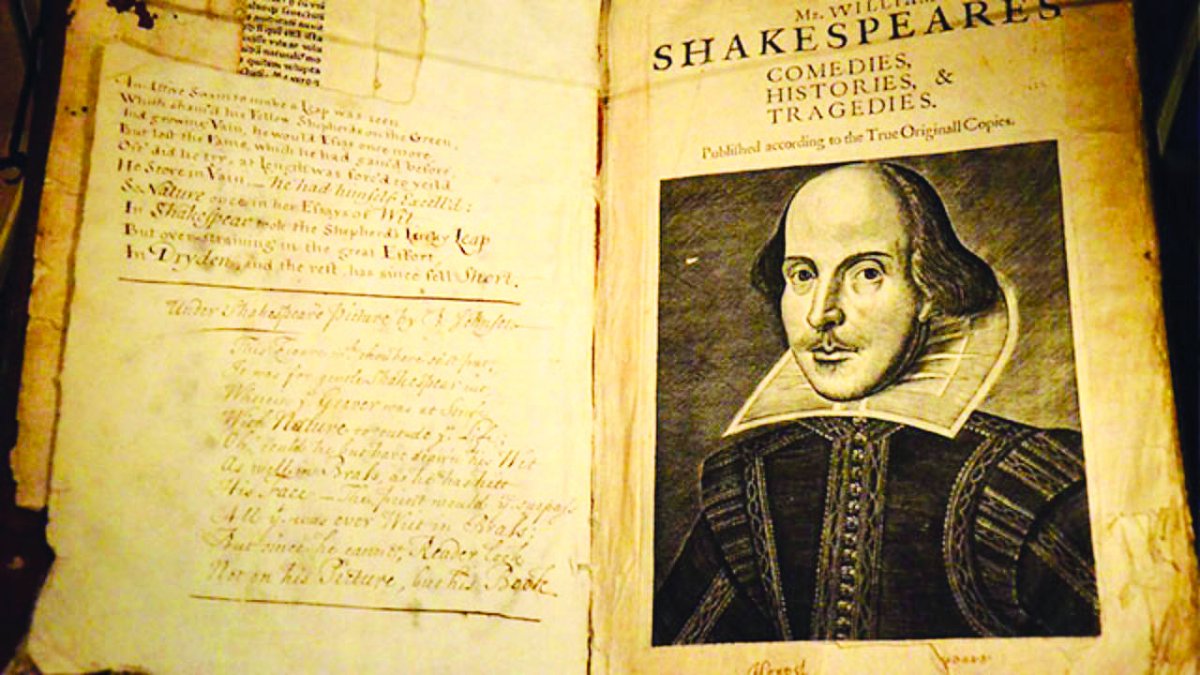 Swain to make a Leap was seen
Which sham'd his Fellow Shepherds on the Green,
And growing Vain, he would Essay once more
But lost the Fame, which he had gain'd before
Oft' did he try, at Length was forc'd to yeild
He Strove in Vain — he had himself Excell'd:
So Nature once in her Essays of Wit
In Shakespear took the Shepherd's Lucky Leap
But over-straining in the great Effort
In Dryden, and the rest, has since fell Short.
Under Shakespears picture by Johnson
This Figure yt thou here seest put,
It was for gentle Shakespear cut
Wherein ye Graver was at Strife
With Nature ye Life;
Oh could he but have drawn his Wit
As well in Brass, as he has hitt
His Face — The print would surpass
All yt was ever Writ in Brass;
But since he cannot, Reader look
Not on his Picture, but his Book
Mr. WILLIAM
SHAKESPEARES
COMEDIES,
HISTORIES, &
TRAGEDIES.
Published according to the True Originall Copies.